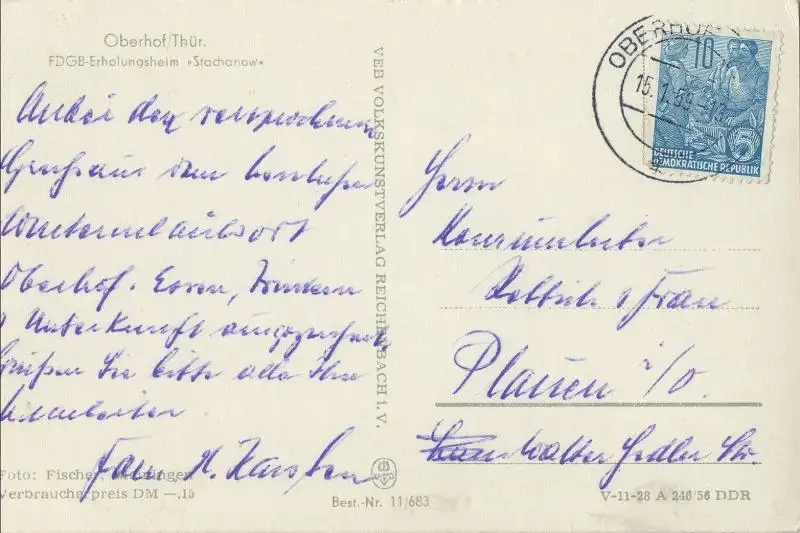 Oberhof/Thür.
FDGB-Erholungsheim »Stachanow«
Anbei den versprochenen
Gruß aus dem herrlichen
Winterurlaubsort
Oberhof. Essen, Trinken
Unterkunft ausgezeichnet
Grüßen Sie bitte alle Ihre
Mitarbeiter.
Fam. H. Karsten
Foto: Fischer, Meiningen
Verbraucherpreis DM —.15
VEB VOLKSKUNSTVERLAG REICHENBACH I. V.
Best.-Nr. 11/683
OBERHOF
15.1.59-13
10
5
DEUTSCHE
DEMOKRATISCHE REPUBLIK
Herrn
Konsumleiter
u Frau
Plauen i/V.
Walter Str.
V-11-28 A 246/56 DDR